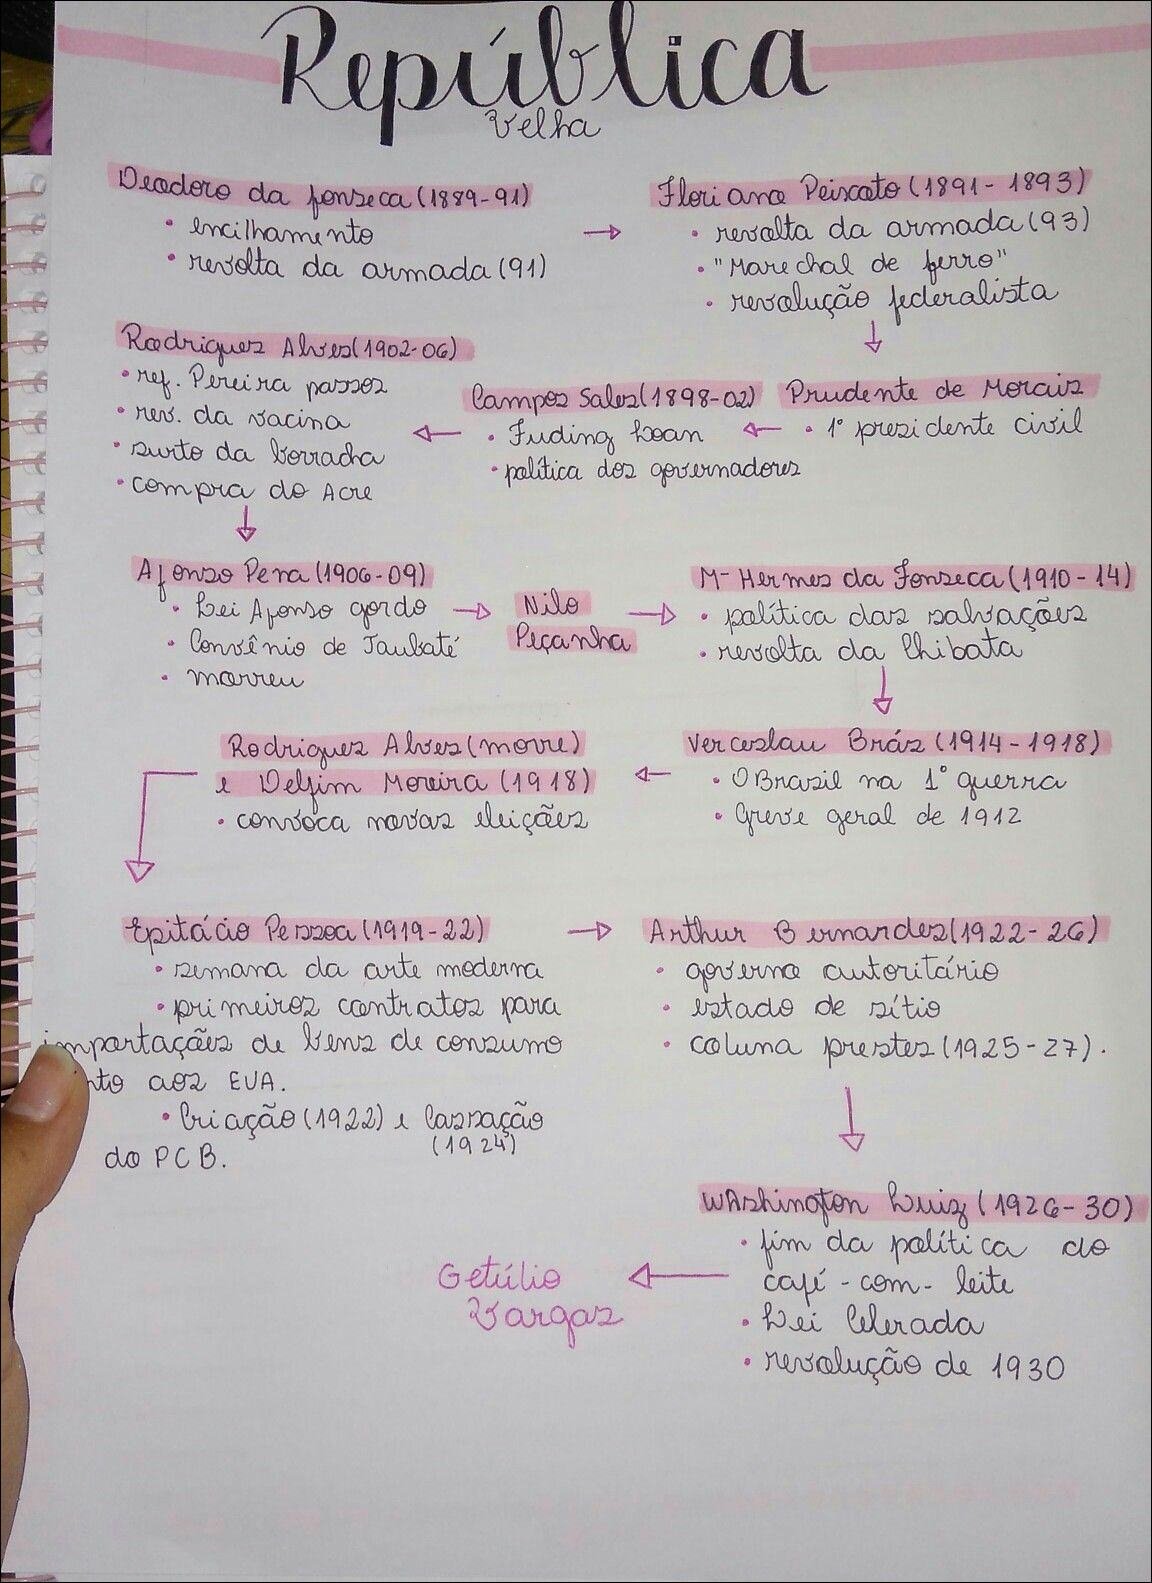 República
Velha
Deodoro da fonseca (1889-91)
• encilhamento
• revolta da armada (91)
Floriano Peixoto (1891-1893)
• revolta da armada (93)
• "Marechal de ferro"
• revolução federalista
Prudente de Morais
• 1° presidente civil
Campos Sales (1898-02)
• Fuding Loan
• política dos governadores
Rodrigues Alves (1902-06)
• ref. Pereira passos
• rev. da vacina
• surto da borracha
• compra do Acre
Afonso Pena (1906-09)
• Lei Afonso gordo
• Convênio de Taubaté
• morreu
Nilo
Peçanha
Mᵃˡ Hermes da Fonseca (1910-14)
• política das salvações
• revolta da Chibata
Verceslau Brás (1914-1918)
• O Brasil na 1° guerra
• Greve geral de 1912
Rodrigues Alves (morre)
e Delfim Moreira (1918)
• convoca novas eleições
Epitácio Pessoa (1919-22)
• semana da arte moderna
• primeiros contratos para
importações de bens de consumo
nto aos EUA.
• Criação (1922) e Cassação
(1924)
do PCB.
Arthur Bernardes (1922-26)
• governo autoritário
• estado de sítio
• coluna prestes (1925-27).
WAshington Luiz (1926-30)
• fim da política do
café-com-leite
• Lei Celerada
• revolução de 1930
Getúlio
Vargas